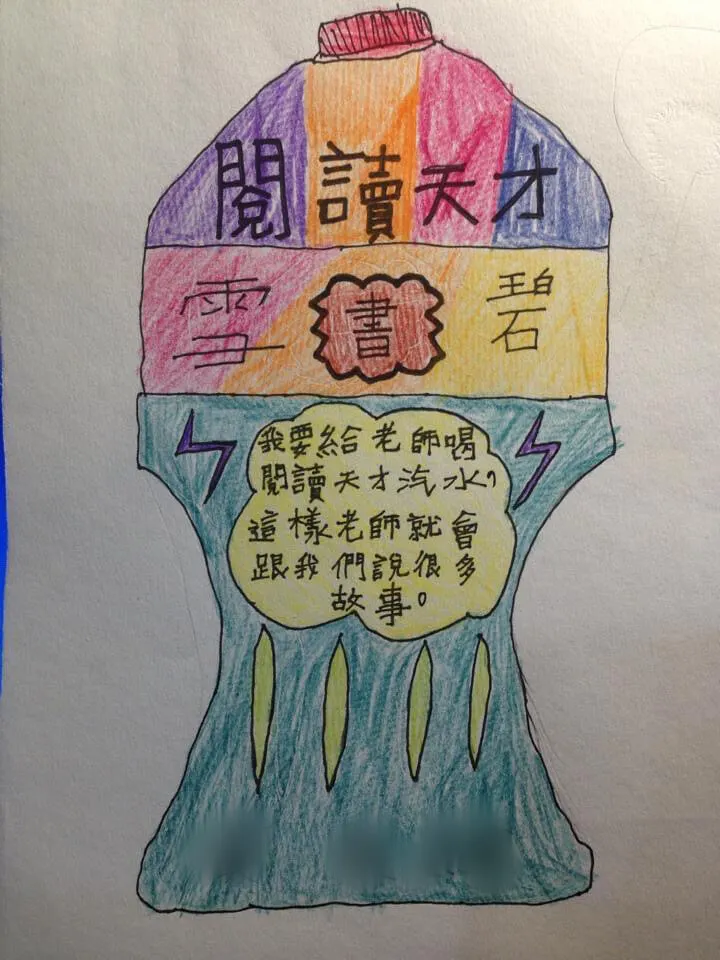 閱讀天才
雪 書 碧
我要給老師喝
閱讀天才汽水，
這樣老師就會
跟我們說很多
故事。